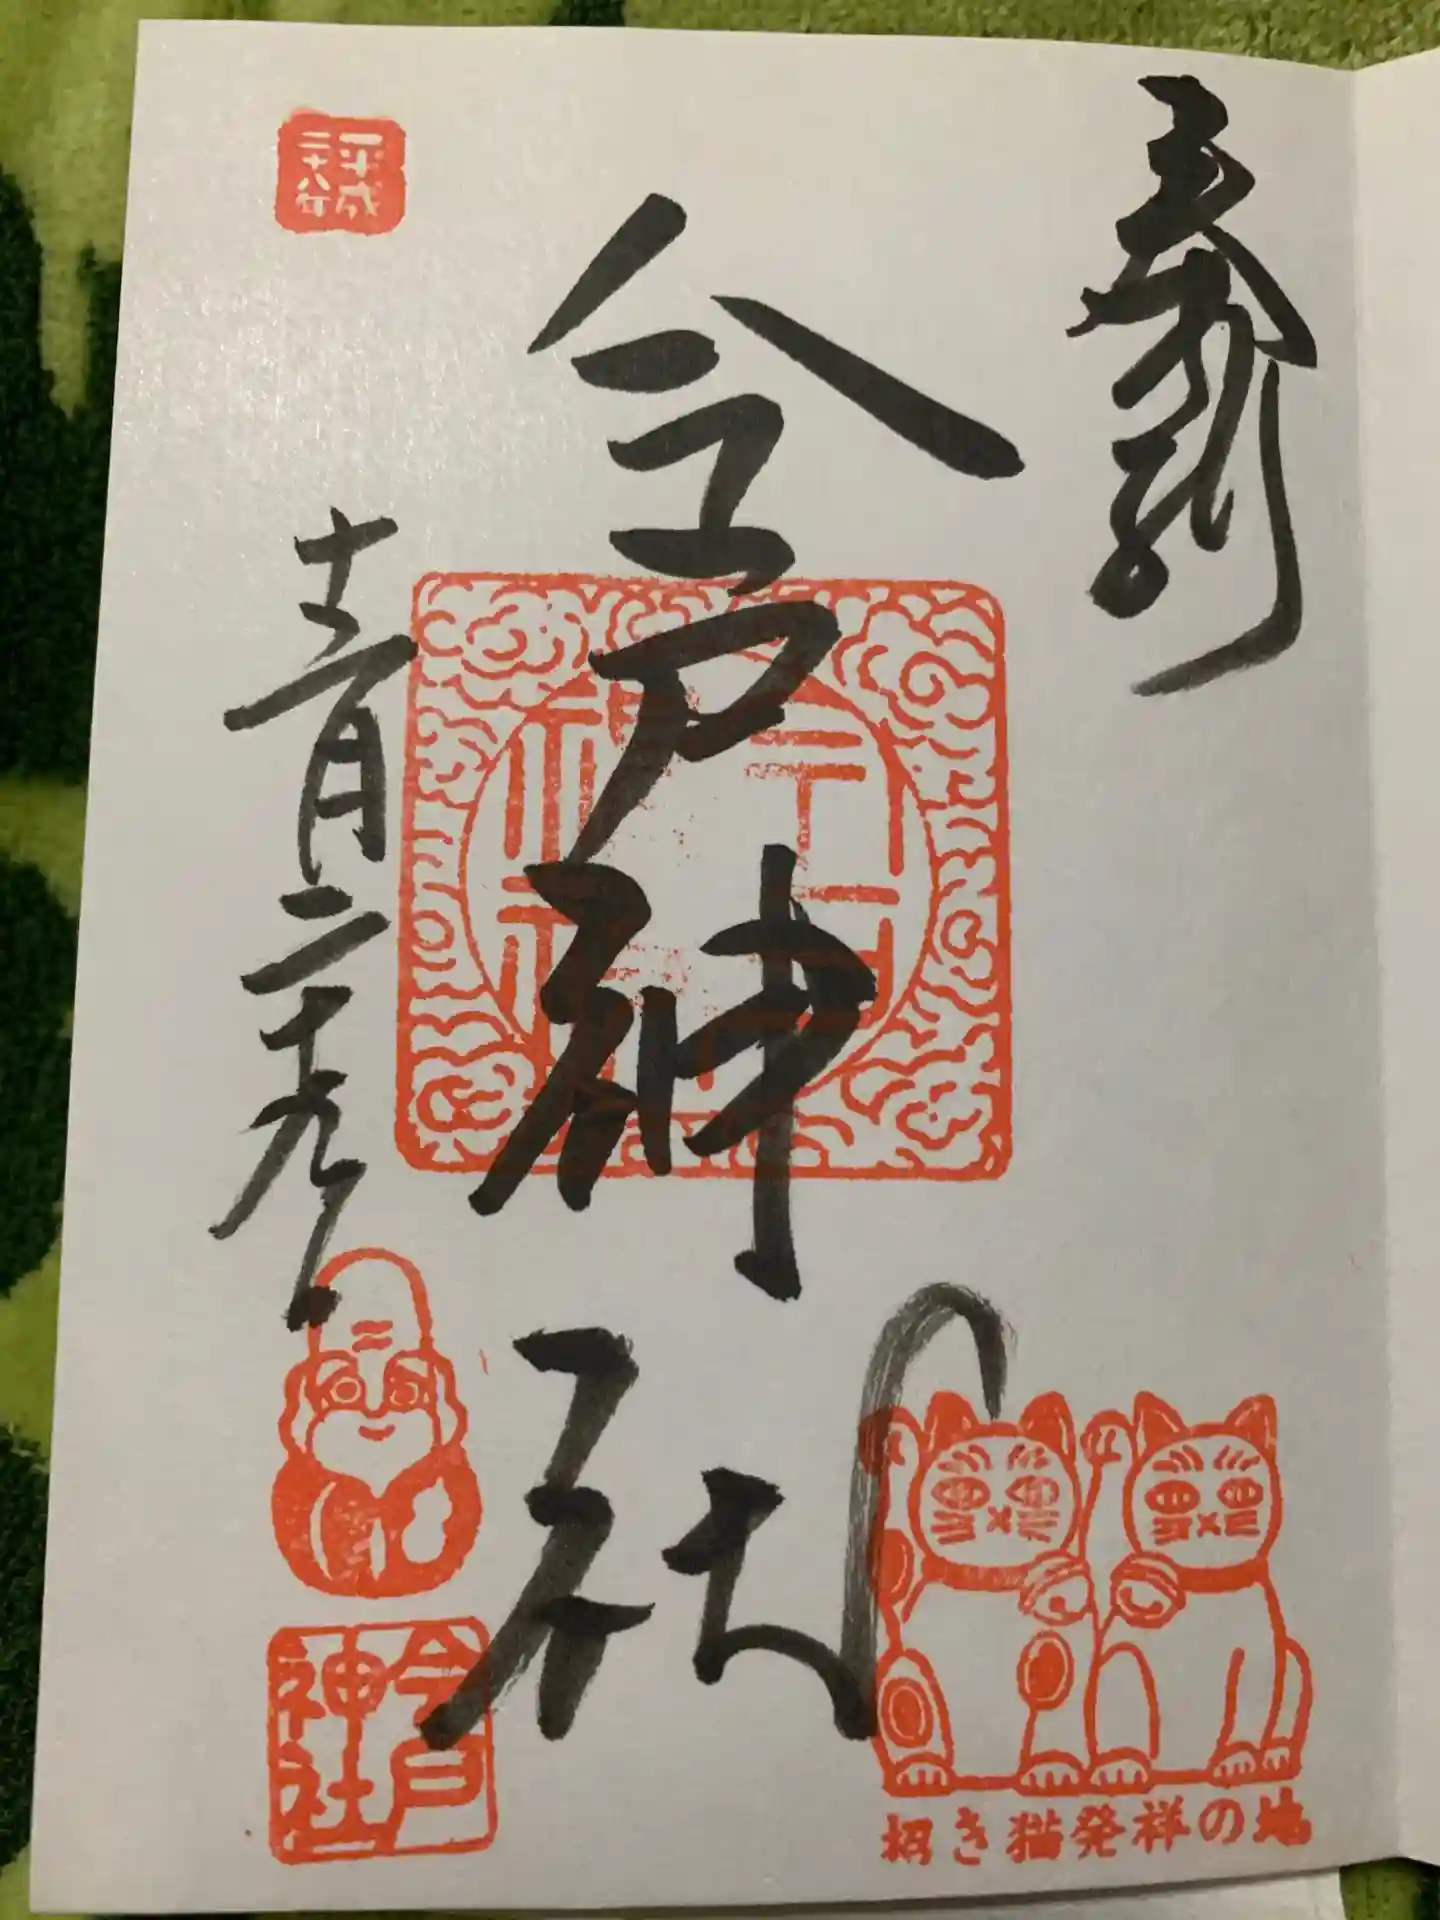 奉拝
今戸神社
平成
二十八年
十一月二十九日
今戸
神社
招き猫発祥の地